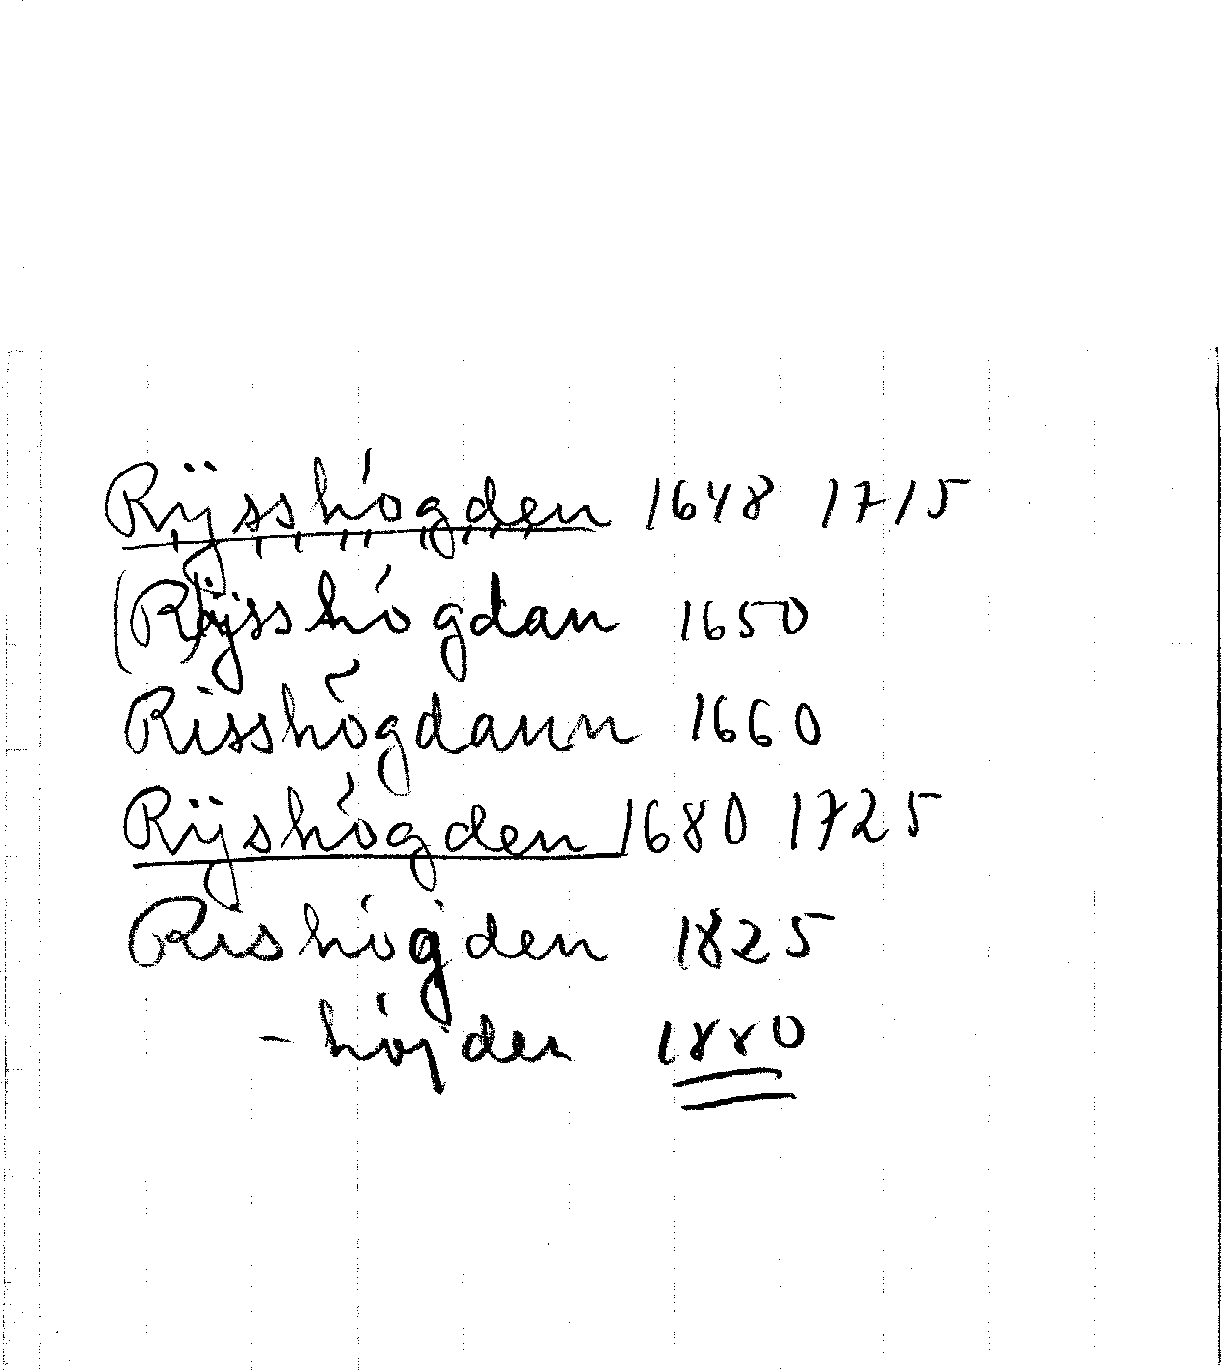 Rÿsshögden 1648 1715
(R)ÿsshögdan 1650
Risshögdann 1660
Rÿshögden 1680 1725
Rishögden 1825
- höjden 1880